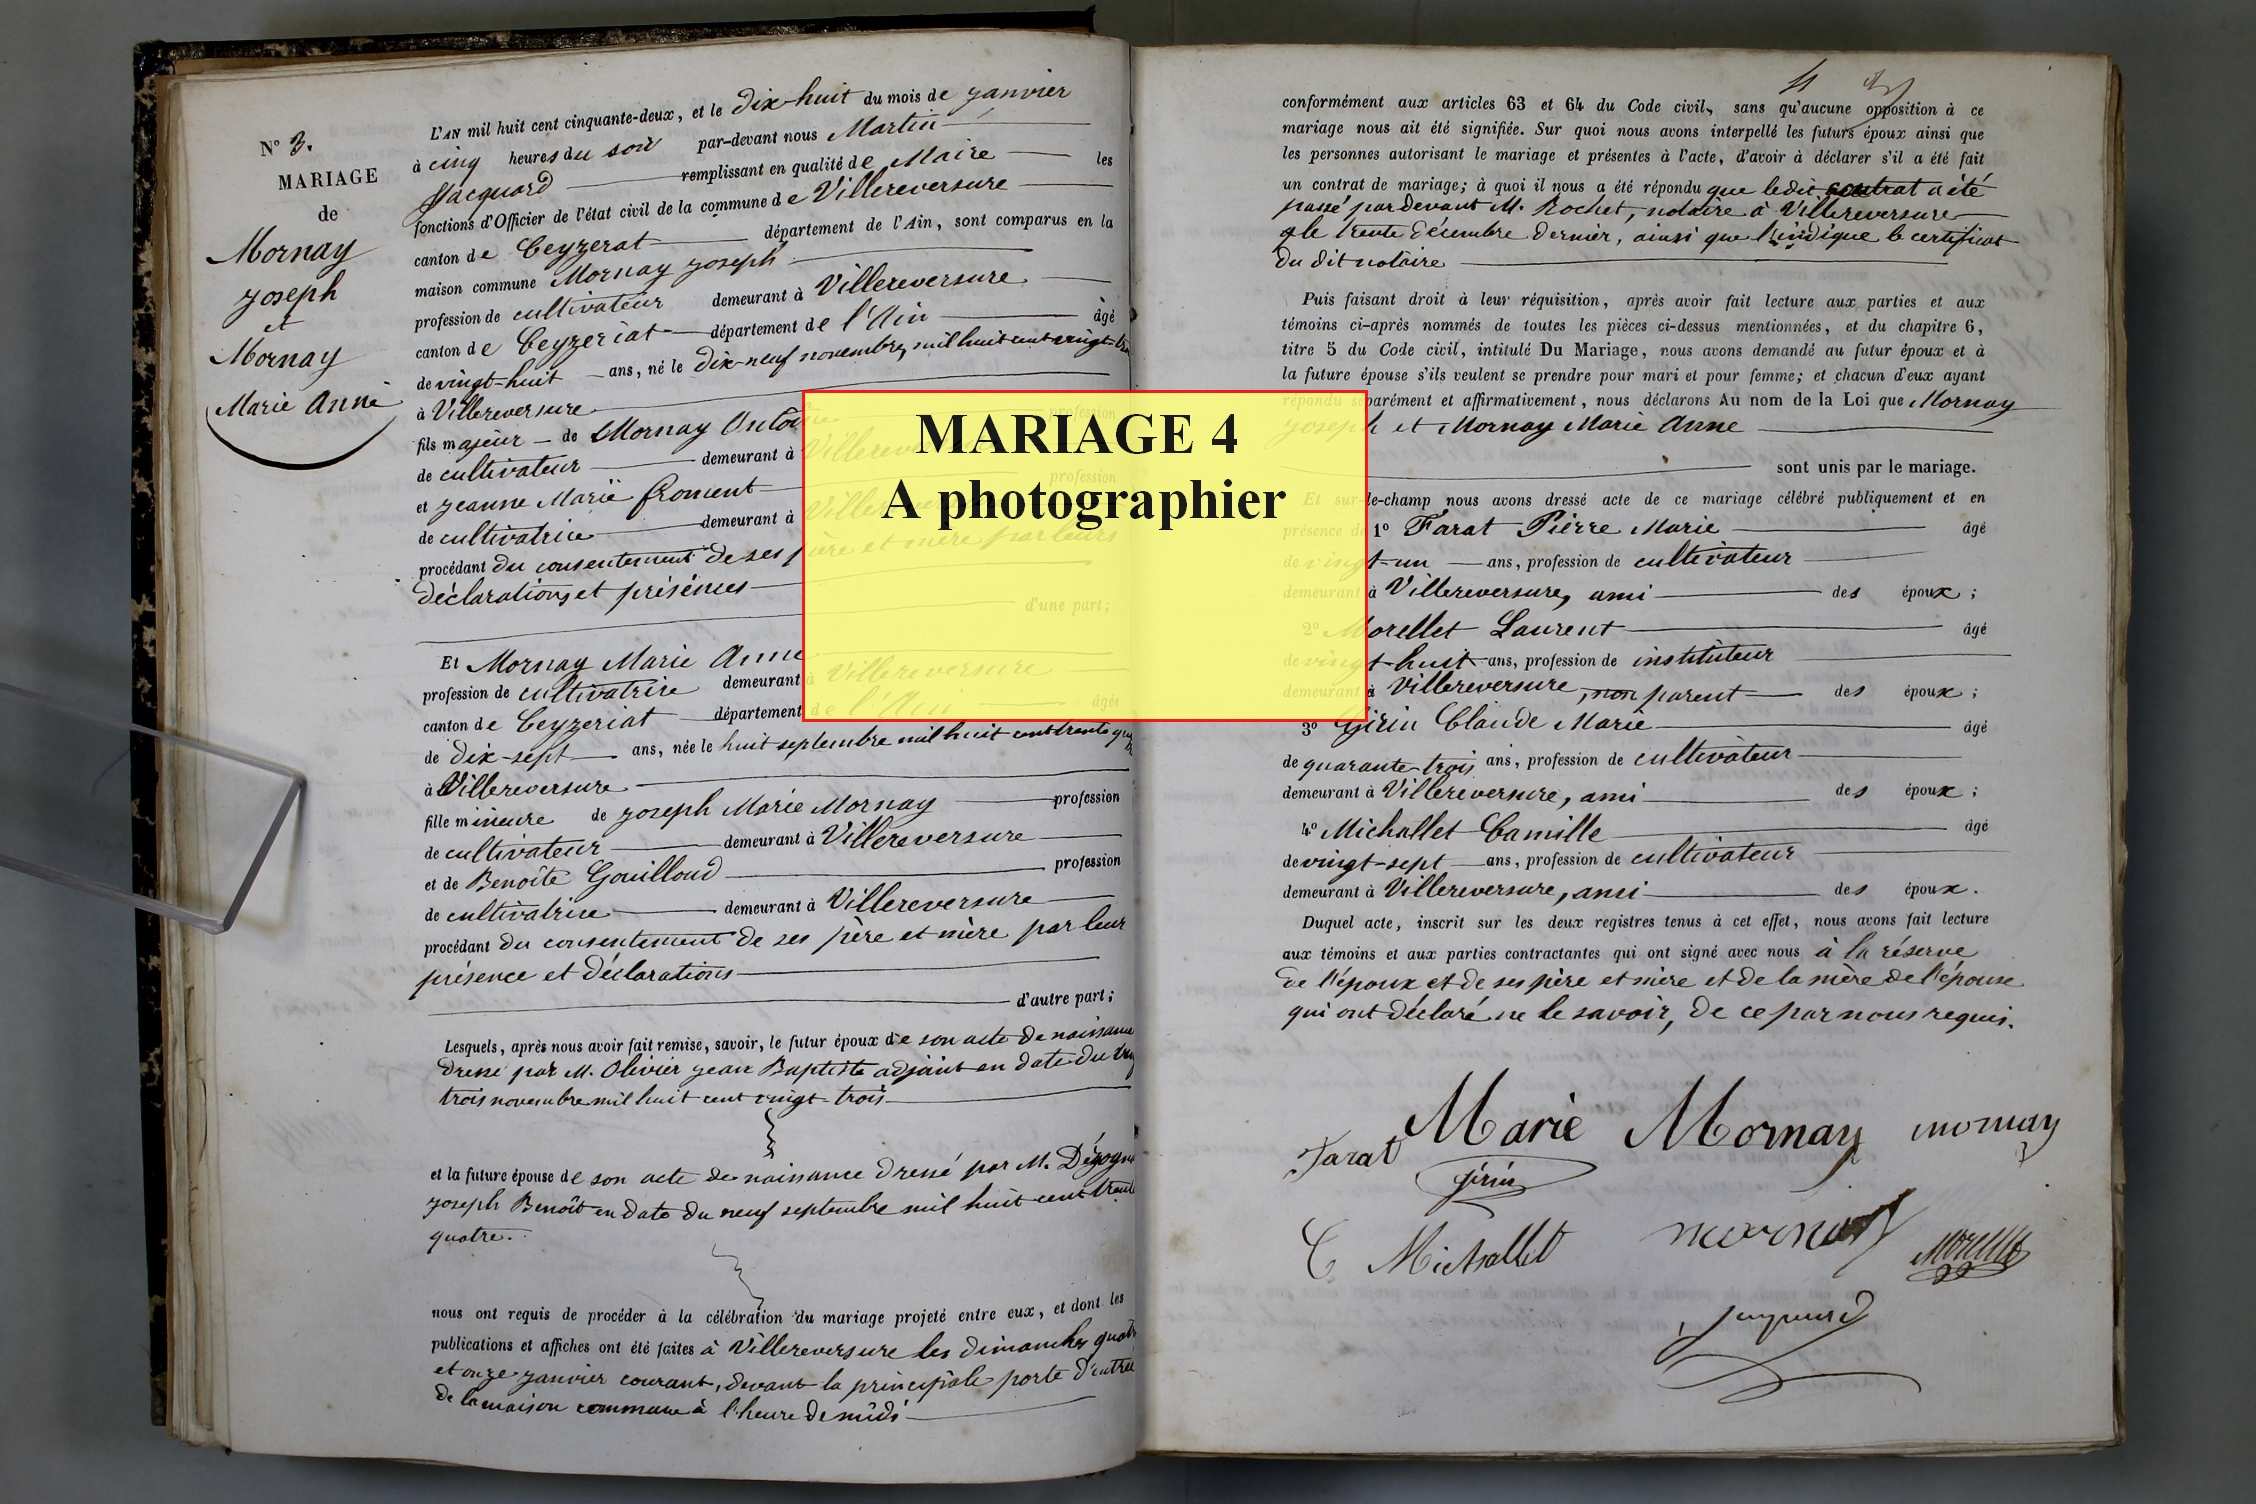 N° 3.
MARIAGE
de
Mornay
Joseph
et
Mornay
Marie Anne
L'AN mil huit cent cinquante-deux, et le dix-huit du mois de janvier
à cinq heures du soir par-devant nous Martin
Jacquard remplissant en qualité de Maire les
fonctions d'Officier de l'état civil de la commune de Villereversure
canton de Ceyzeriat département de l'Ain, sont comparus en la
maison commune Mornay Joseph
profession de cultivateur demeurant à Villereversure
canton de Ceyzeriat département de l'Ain âgé
de vingt-huit ans, né le dix-neuf novembre mil huit cent vingt-
à Villereversure
fils majeur de Mornay Antoine profession
de cultivateur demeurant à Villereversure
et Jeanne Marie froment profession
de cultivatrice demeurant à Villereversure
procédant du consentement de ses père et mère par leurs
déclarations et présences
d'une part;
Et Mornay Marie Anne
profession de cultivatrice demeurant à Villereversure
canton de Ceyzeriat département de l'Ain âgée
de dix-sept ans, née le huit septembre mil huit cent trente
à Villereversure
fille mineure de Joseph Marie Mornay profession
de cultivateur demeurant à Villereversure
et de Benoîte Gouilloud profession
de cultivatrice demeurant à Villereversure
procédant du consentement de ses père et mère par leur
présence et déclarations
d'autre part;
Lesquels, après nous avoir fait remise, savoir, le futur époux de son acte de naissance
dressé par M. Olivier Jean Baptiste adjoint en date du
trois novembre mil huit cent vingt-trois
et la future épouse de son acte de naissance dressé par M.
Joseph Benoît en date du neuf septembre mil huit cent trente
quatre.
nous ont requis de procéder à la célébration du mariage projeté entre eux, et dont les
publications et affiches ont été faites à Villereversure les dimanches quatre
et onze janvier courant, devant la principale porte d'entrée
de la maison commune à l'heure de midi
MARIAGE 4
A photographier
4
conformément aux articles 63 et 64 du Code civil, sans qu'aucune opposition à ce
mariage nous ait été signifiée. Sur quoi nous avons interpellé les futurs époux ainsi que
les personnes autorisant le mariage et présentes à l'acte, d'avoir à déclarer s'il a été fait
un contrat de mariage; à quoi il nous a été répondu que ledit contrat a été
passé par devant M. Rochet, notaire à Villereversure
le trente décembre dernier, ainsi que l'indique le certificat
du dit notaire
Puis faisant droit à leur réquisition, après avoir fait lecture aux parties et aux
témoins ci-après nommés de toutes les pièces ci-dessus mentionnées, et du chapitre 6,
titre 5 du Code civil, intitulé Du Mariage, nous avons demandé au futur époux et à
la future épouse s'ils veulent se prendre pour mari et pour femme; et chacun d'eux ayant
répondu séparément et affirmativement, nous déclarons Au nom de la Loi que Mornay
Joseph et Mornay Marie Anne
sont unis par le mariage.
Et sur-le-champ nous avons dressé acte de ce mariage célébré publiquement et en
présence de 1° Farat Pierre Marie âgé
de vingt-un ans, profession de cultivateur
demeurant à Villereversure, ami des époux;
2° Morellet Laurent âgé
de vingt-huit ans, profession de instituteur
demeurant à Villereversure, non parent des époux;
3° Girin Claude Marie âgé
de quarante-trois ans, profession de cultivateur
demeurant à Villereversure, ami des époux;
4° Michallet Camille âgé
de vingt-sept ans, profession de cultivateur
demeurant à Villereversure, ami des époux.
Duquel acte, inscrit sur les deux registres tenus à cet effet, nous avons fait lecture
aux témoins et aux parties contractantes qui ont signé avec nous à la réserve
de l'époux et de ses père et mère et de la mère de l'épouse
qui ont déclaré ne le savoir, de ce par nous requis.
Marie Mornay mornay
Farat
girin
C Michallet mornay Morellet
Jacquard